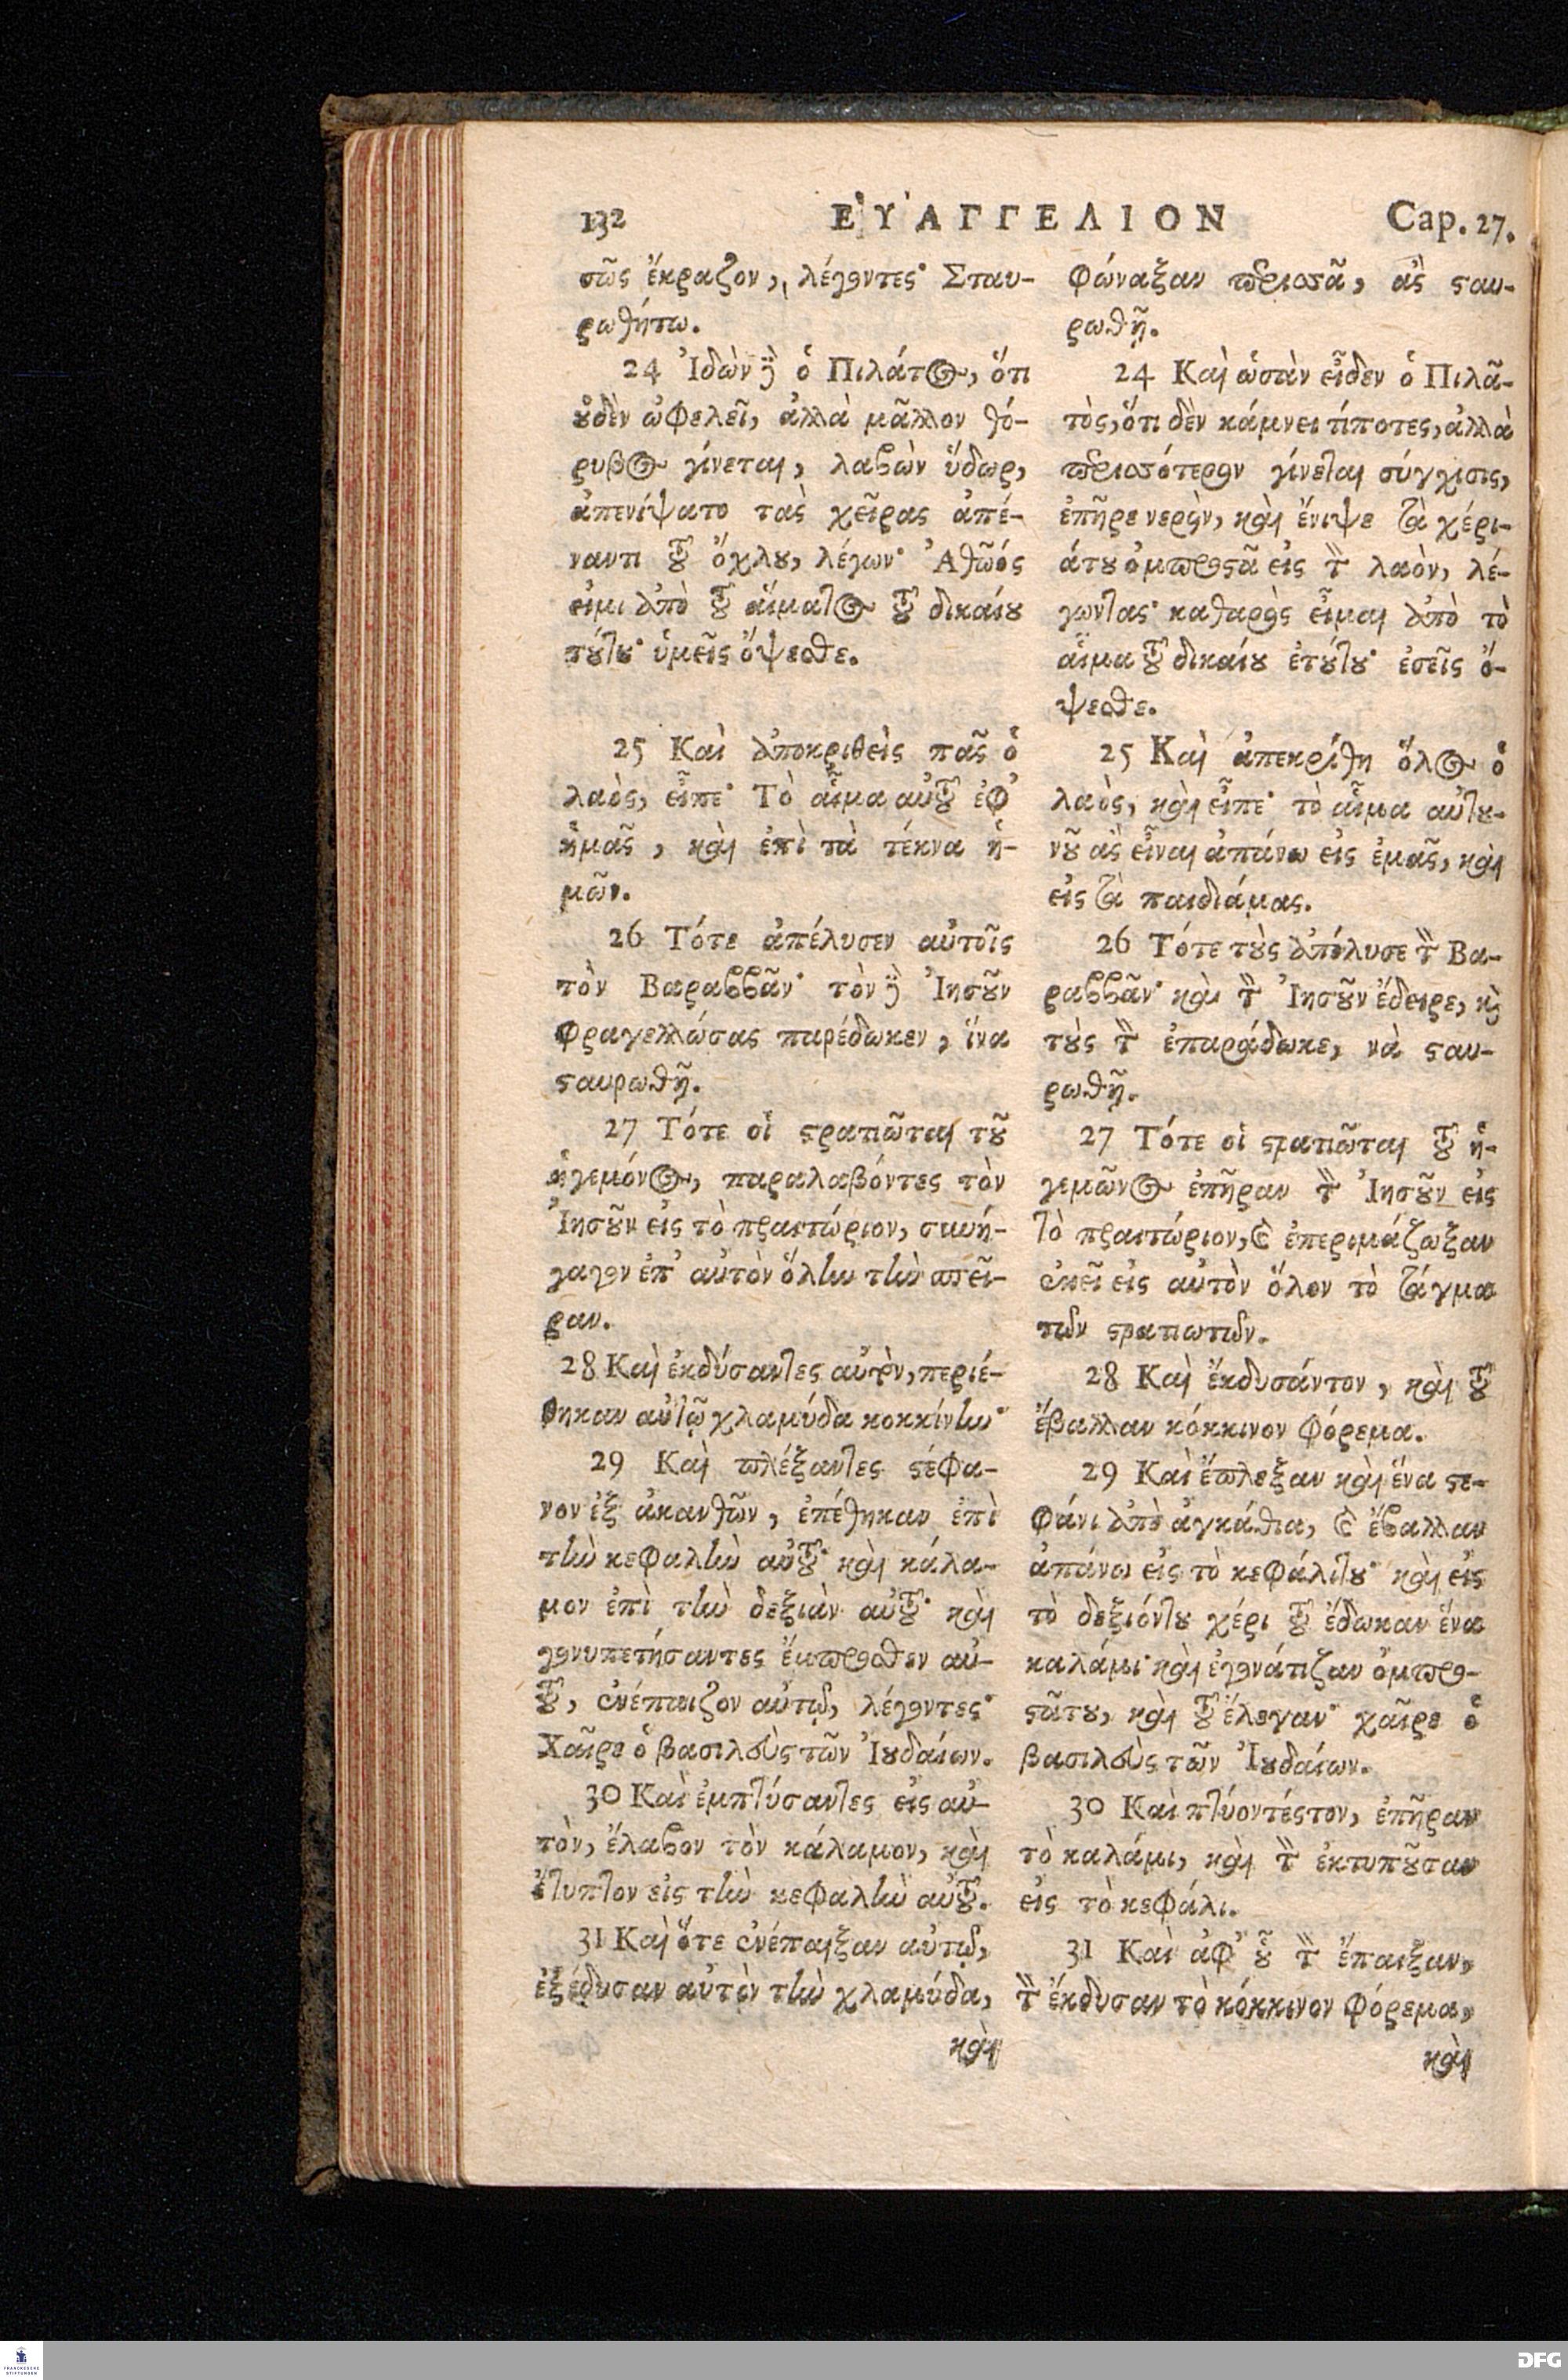 132 ΕΥ̓ΑΓΓΕΛΙΟΝ Cap. 27.
σῶς ἔκραζον, λέγοντες· Σταυ-
ρωθήτω.
24 Ἰδὼν ȣ̀ ὁ Πιλάτος, ὅτι
ȣ̓δὲν ὠφελεῖ, ἀλλὰ μᾶλλον θό-
ρυβος γίνεται, λαβὼν ὕδωρ,
ἀπενίψατο τὰς χεῖρας ἀπέ-
ναντι τȣ͂ ὄχλȣ, λέγων· Ἀθῶός
εἰμι ἀπὸ τȣ͂ αἵματος τȣ͂ δικαίȣ
τȣ́τȣ· ὑμεῖς ὄψεσθε.
25 Καὶ ἀποκριθεὶς πᾶς ὁ
λαὸς, εἶπε· Τὸ αἷμα αὐτȣ͂ ἐφ'
ἡμᾶς, καὶ ἐπὶ τὰ τέκνα ἡ-
μῶν.
26 Τότε ἀπέλυσεν αὐτοῖς
τὸν Βαραββᾶν· τὸν δὲ Ἰησȣ͂ν
φραγελλώσας παρέδωκεν, ἵνα
ϛαυρωθῇ.
27 Τότε οἱ ϛρατιῶται τȣ͂
ἡγεμόνος, παραλαβόντες τὸν
Ἰησȣ͂ν εἰς τὸ πραιτώριον, συνή-
γαγον ἐπ' αὐτὸν ὅλην τὴν σπεῖ-
ραν.
28 Καὶ ἐκδύσαντες αὐτὸν, περιέ-
θηκαν αὐτῷ χλαμύδα κοκκίνην·
29 Καὶ πλέξαντες ϛέφα-
νον ἐξ ἀκανθῶν, ἐπέθηκαν ἐπὶ
τὴν κεφαλὴν αὐτȣ͂· καὶ κάλα-
μον ἐπὶ τὴν δεξιὰν αὐτȣ͂· καὶ
γονυπετήσαντες ἔμπροσθεν αὐ-
τȣ͂, ἐνέπαιζον αὐτῷ, λέγοντες·
Χαῖρε ὁ βασιλεὺς τῶν Ἰȣδαίων.
30 Καὶ ἐμπτύσαντες εἰς αὐ-
τὸν, ἔλαβον τὸν κάλαμον, καὶ
ἔτυπτον εἰς τὴν κεφαλὴν αὐτȣ͂.
31 Καὶ ὅτε ἐνέπαιξαν αὐτῷ,
ἐξέδυσαν αὐτὸν τὴν χλαμύδα,
καὶ
φώναξαν περισσᾶ, ἂς ϛαυ-
ρωθῇ.
24 Καὶ ὡσὰν εἶδεν ὁ Πιλᾶ-
τὸς, ὅτι δὲν κάμνει τίποτες, ἀλλὰ
περισσότερον γίνεται σύγχισις,
ἐπῆρε νερὸν, καὶ ἔνιψε τὰ χέρι-
άτȣ ὀμπροϛᾶ εἰς τὸν λαὸν, λέ-
γωντας· καθαρὸς εἶμαι ἀπὸ τὸ
αἷμα τȣ͂ δικαίȣ ἐτȣ́τȣ· ἐσεῖς ὄ-
ψεσθε.
25 Καὶ ἀπεκρίθη ὅλος ὁ
λαὸς, καὶ εἶπε· τὸ αἷμα αὐτȣ-
νȣ͂ ἂς εἶναι ἀπάνω εἰς ἐμᾶς, καὶ
εἰς τὰ παιδιάμας.
26 Τότε τȣ̀ς ἀπόλυσε τὸν Βα-
ραββᾶν· καὶ τὸν Ἰησȣ͂ν ἔδειρε, καὶ
τȣ̀ς τὸν ἐπαράδωκε, νὰ ϛαυ-
ρωθῇ.
27 Τότε οἱ ϛρατιῶται τȣ͂ ἡ-
γεμῶνος ἐπῆραν τὸν Ἰησȣ͂ν εἰς
τὸ πραιτώριον, καὶ ἐπεριμάζωξαν
ἐκεῖ εἰς αὐτὸν ὅλον τὸ τάγμα
τῶν ϛρατιωτῶν.
28 Καὶ ἔκδυσάντον, καὶ τȣ͂
ἔβαλλαν κόκκινον φόρεμα.
29 Καὶ ἔπλεξαν καὶ ἕνα ϛε-
φάνι ἀπὸ ἀγκάθια, καὶ ἔβαλλαν
ἀπάνω εἰς τὸ κεφάλιτȣ· καὶ εἰς
τὸ δεξιόντȣ χέρι τȣ͂ ἔδωκαν ἕνα
καλάμι· καὶ ἐγονάτιζαν ὀμπρο-
ϛᾶτȣ, καὶ τȣ͂ ἔλεγαν· χαῖρε ὁ
βασιλεὺς τῶν Ἰȣδαίων.
30 Καὶ πτύοντέςτον, ἐπῆραν
τὸ καλάμι, καὶ τὸν ἐκτυπȣ͂σαν
εἰς τὸ κεφάλι.
31 Καὶ ἀφ' ȣ̓͂ τὸν ἔπαιξαν,
τὸν ἔκδυσαν τὸ κόκκινον φόρεμα,
καὶ
FRANCKESCHE STIFTUNGEN
DFG